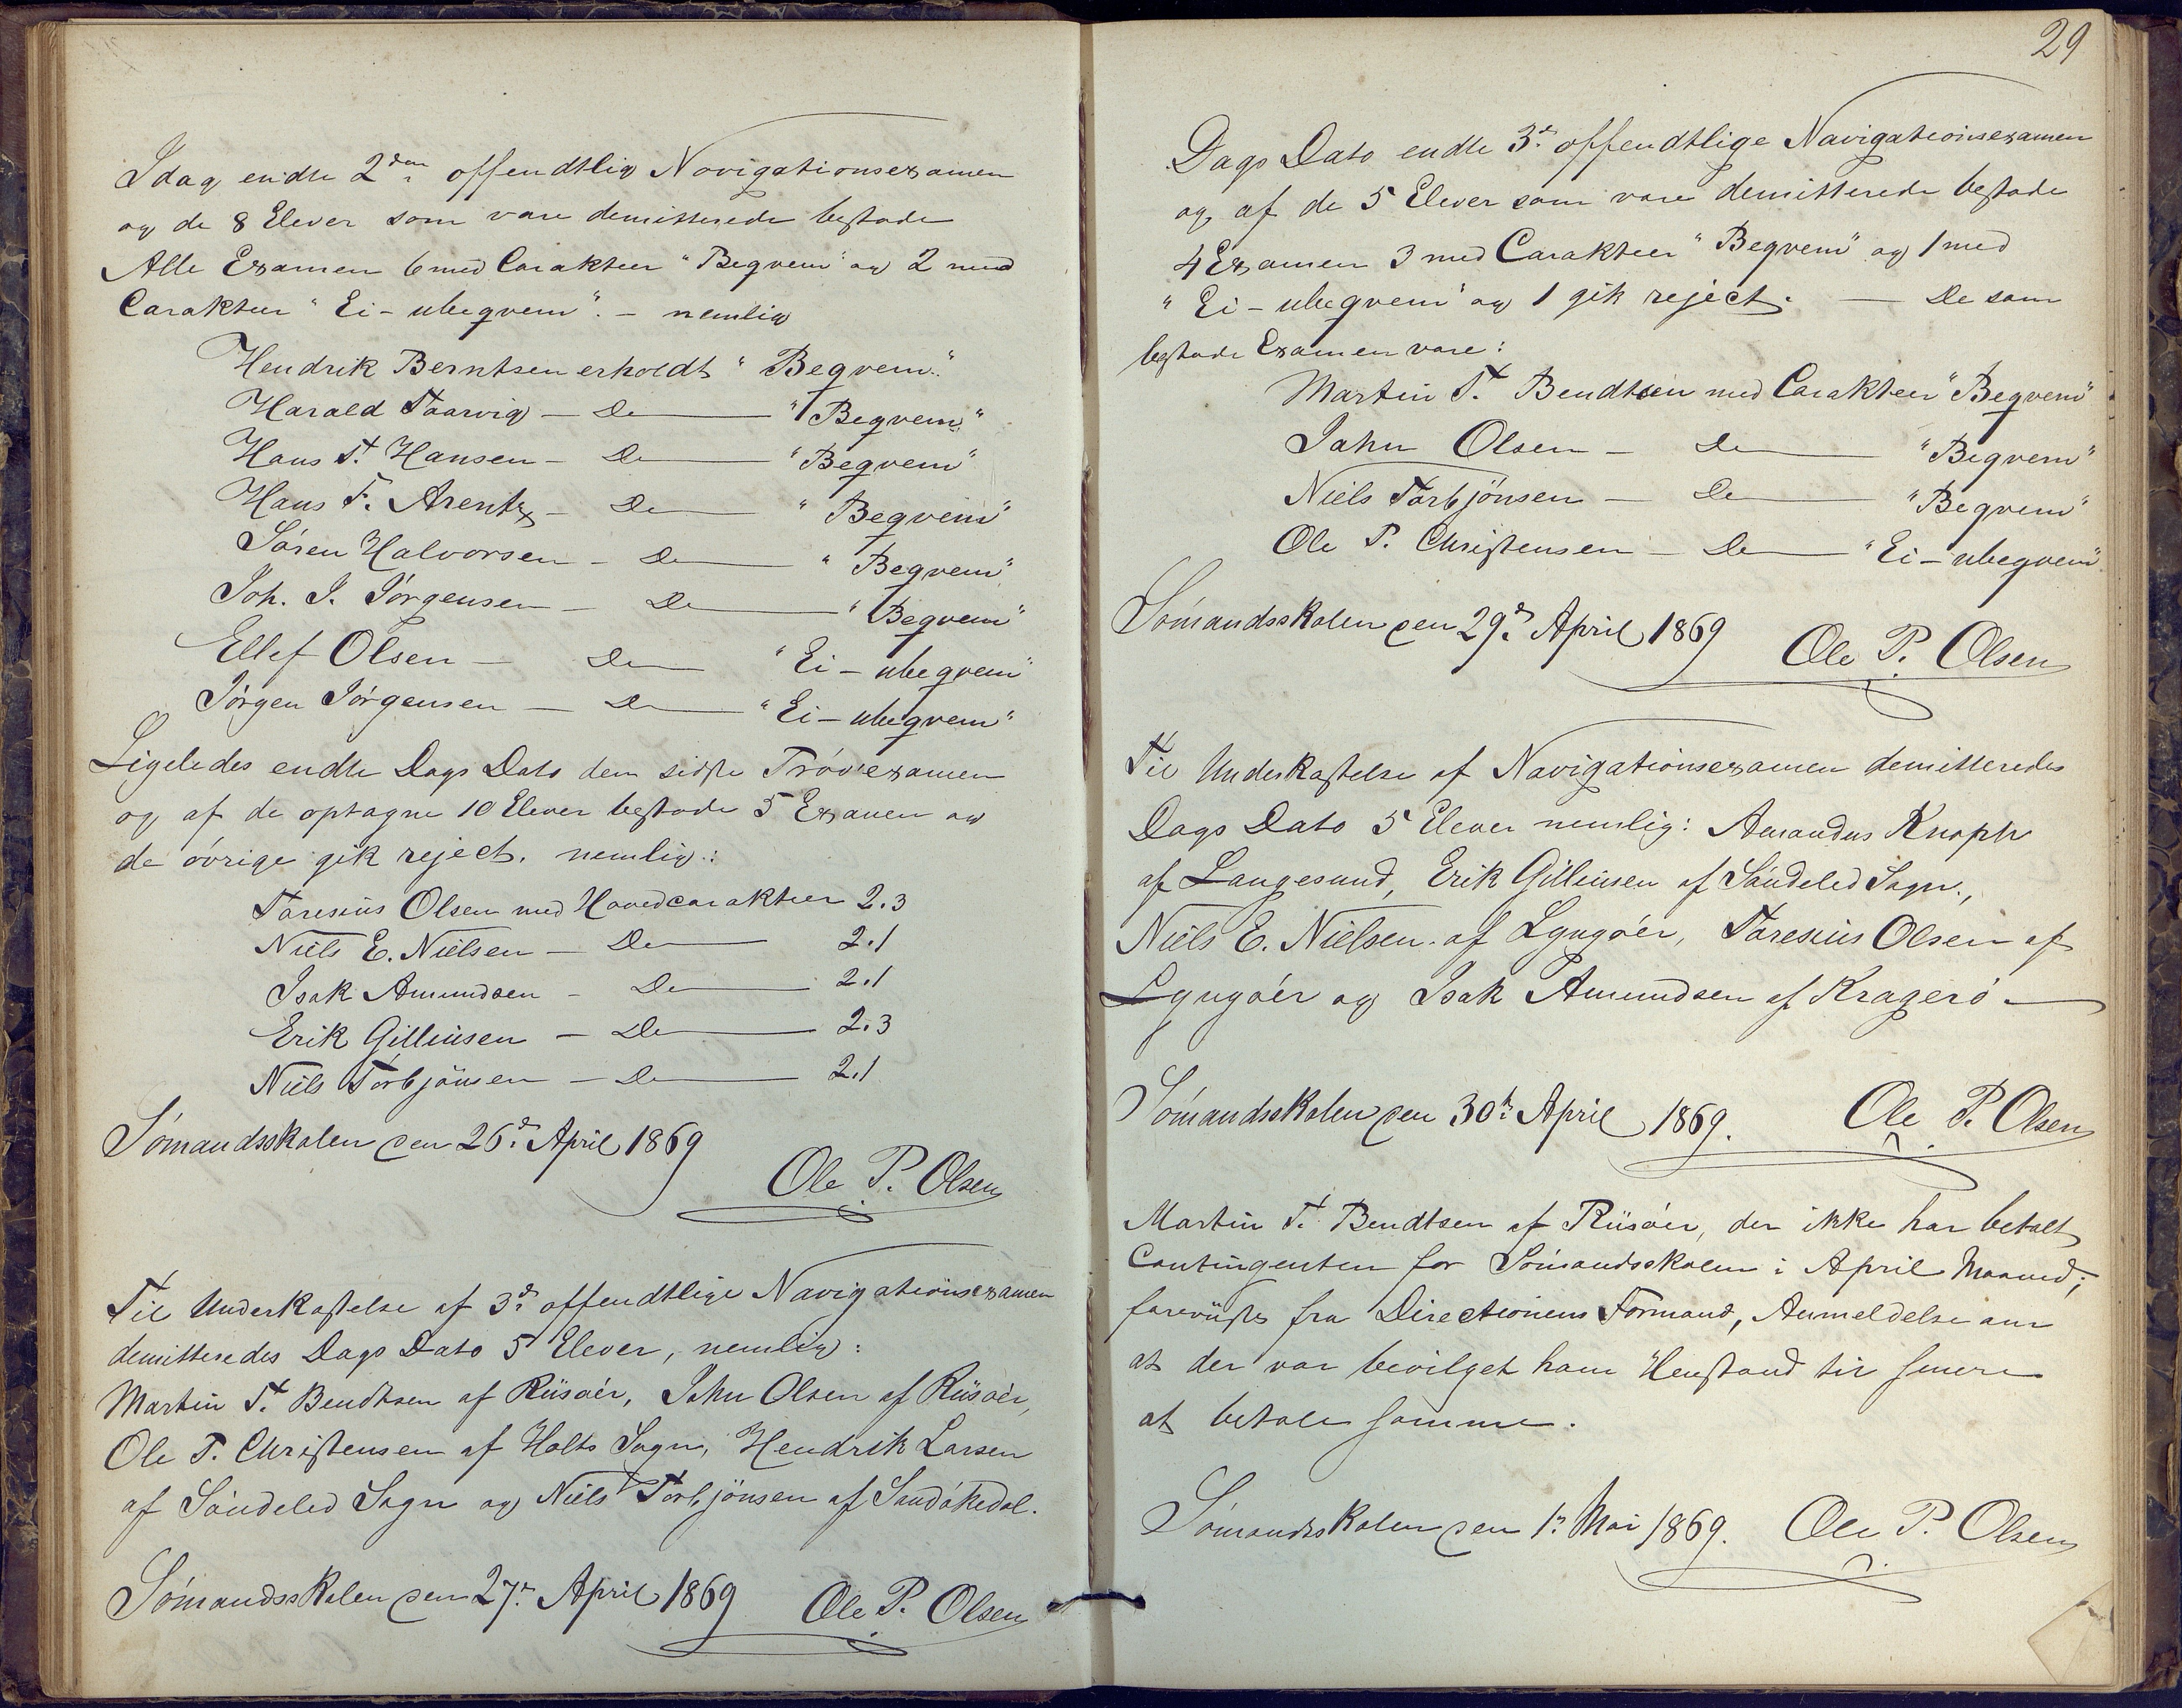 Idag endte 2den offendtlig Navigationsexamen
og de 8 Elever som vare demitterede bestode
Alle Examen 6 med Carakteer "Begvem" og 2 med
Carakteer "Ei-ubegvem". - nemlig
Hendrik Berntsen erholdt "Begvem".
Harald Taarvig - Do "Begvem"
Hans T. Hansen - Do "Begvem"
Hans F. Arentz - Do "Begvem"
Sören Halvorsen - Do "Begvem"
Joh. J. Jörgensen - Do "Begvem"
Ellef Olsen - Do "Ei-ubegvem"
Jörgen Jörgensen - Do "Ei-ubegvem"
Ligeledes endte Dags Dato den sidste Pröveexamen
og af de optagne 10 Elever bestode 5 Examen og
de övrige gik reject. nemlig:
Taresius Olsen med Hovedcarakteer 2.3
Niels E. Nielsen - Do 2.1
Isak Amundsen - Do 2.1
Erik Gilleusen - Do 2.3
Niels Torbjönsen - Do 2.1
Sömandsskolen den 26d. April 1869
Ole P. Olsen
Til Underkastelse af 3d. offendtlige Navigationsexamen
demitteredes Dags Dato 5 Elever, nemlig:
Martin T. Bendtsen af Riisöer, John Olsen af Riisöer,
Ole P. Christensen af Holts Sogn, Hendrik Larsen
af Söndeled Sogn og Niels Torbjönsen af Sandökedal.
Sömandsskolen den 27d. April 1869 Ole P. Olsen
29
Dags Dato endte 3d. offendtlige Navigationsexamen
og af de 5 Elever som vare demitterede bestode
4 Examen 3 med Carakteer "Begvem" og 1 med
"Ei-ubegvem" og 1 gik reject. — De som
bestode Examen vare:
Martin T. Bendtsen med Carakteer "Begvem"
John Olsen - Do "Begvem"
Niels Torbjönsen - Do "Begvem"
Ole P. Christensen - Do "Ei-ubegvem"
Sömandsskolen den 29d. April 1869 Ole P. Olsen
Til Underkastelse af Navigationsexamen demitteredes
Dags Dato 5 Elever nemlig: Amandus Knoph
af Langesund, Erik Gilleusen af Söndeled Sogn,
Niels E. Nielsen af Lyngöer, Taresius Olsen af
Lyngöer og Isak Amundsen af Kragerö —
Sömandsskolen den 30d. April 1869. Ole P. Olsen
Martin T. Bendtsen af Riisöer, der ikke har betalt
Contingenten for Sömandsskolen i April Maaned;
foreviiste fra Directionens Formand, Anmeldelse om
at der var bevilget ham Henstand til senere
at betale samme.
Sömandsskolen den 1d. Mai 1869. Ole P. Olsen